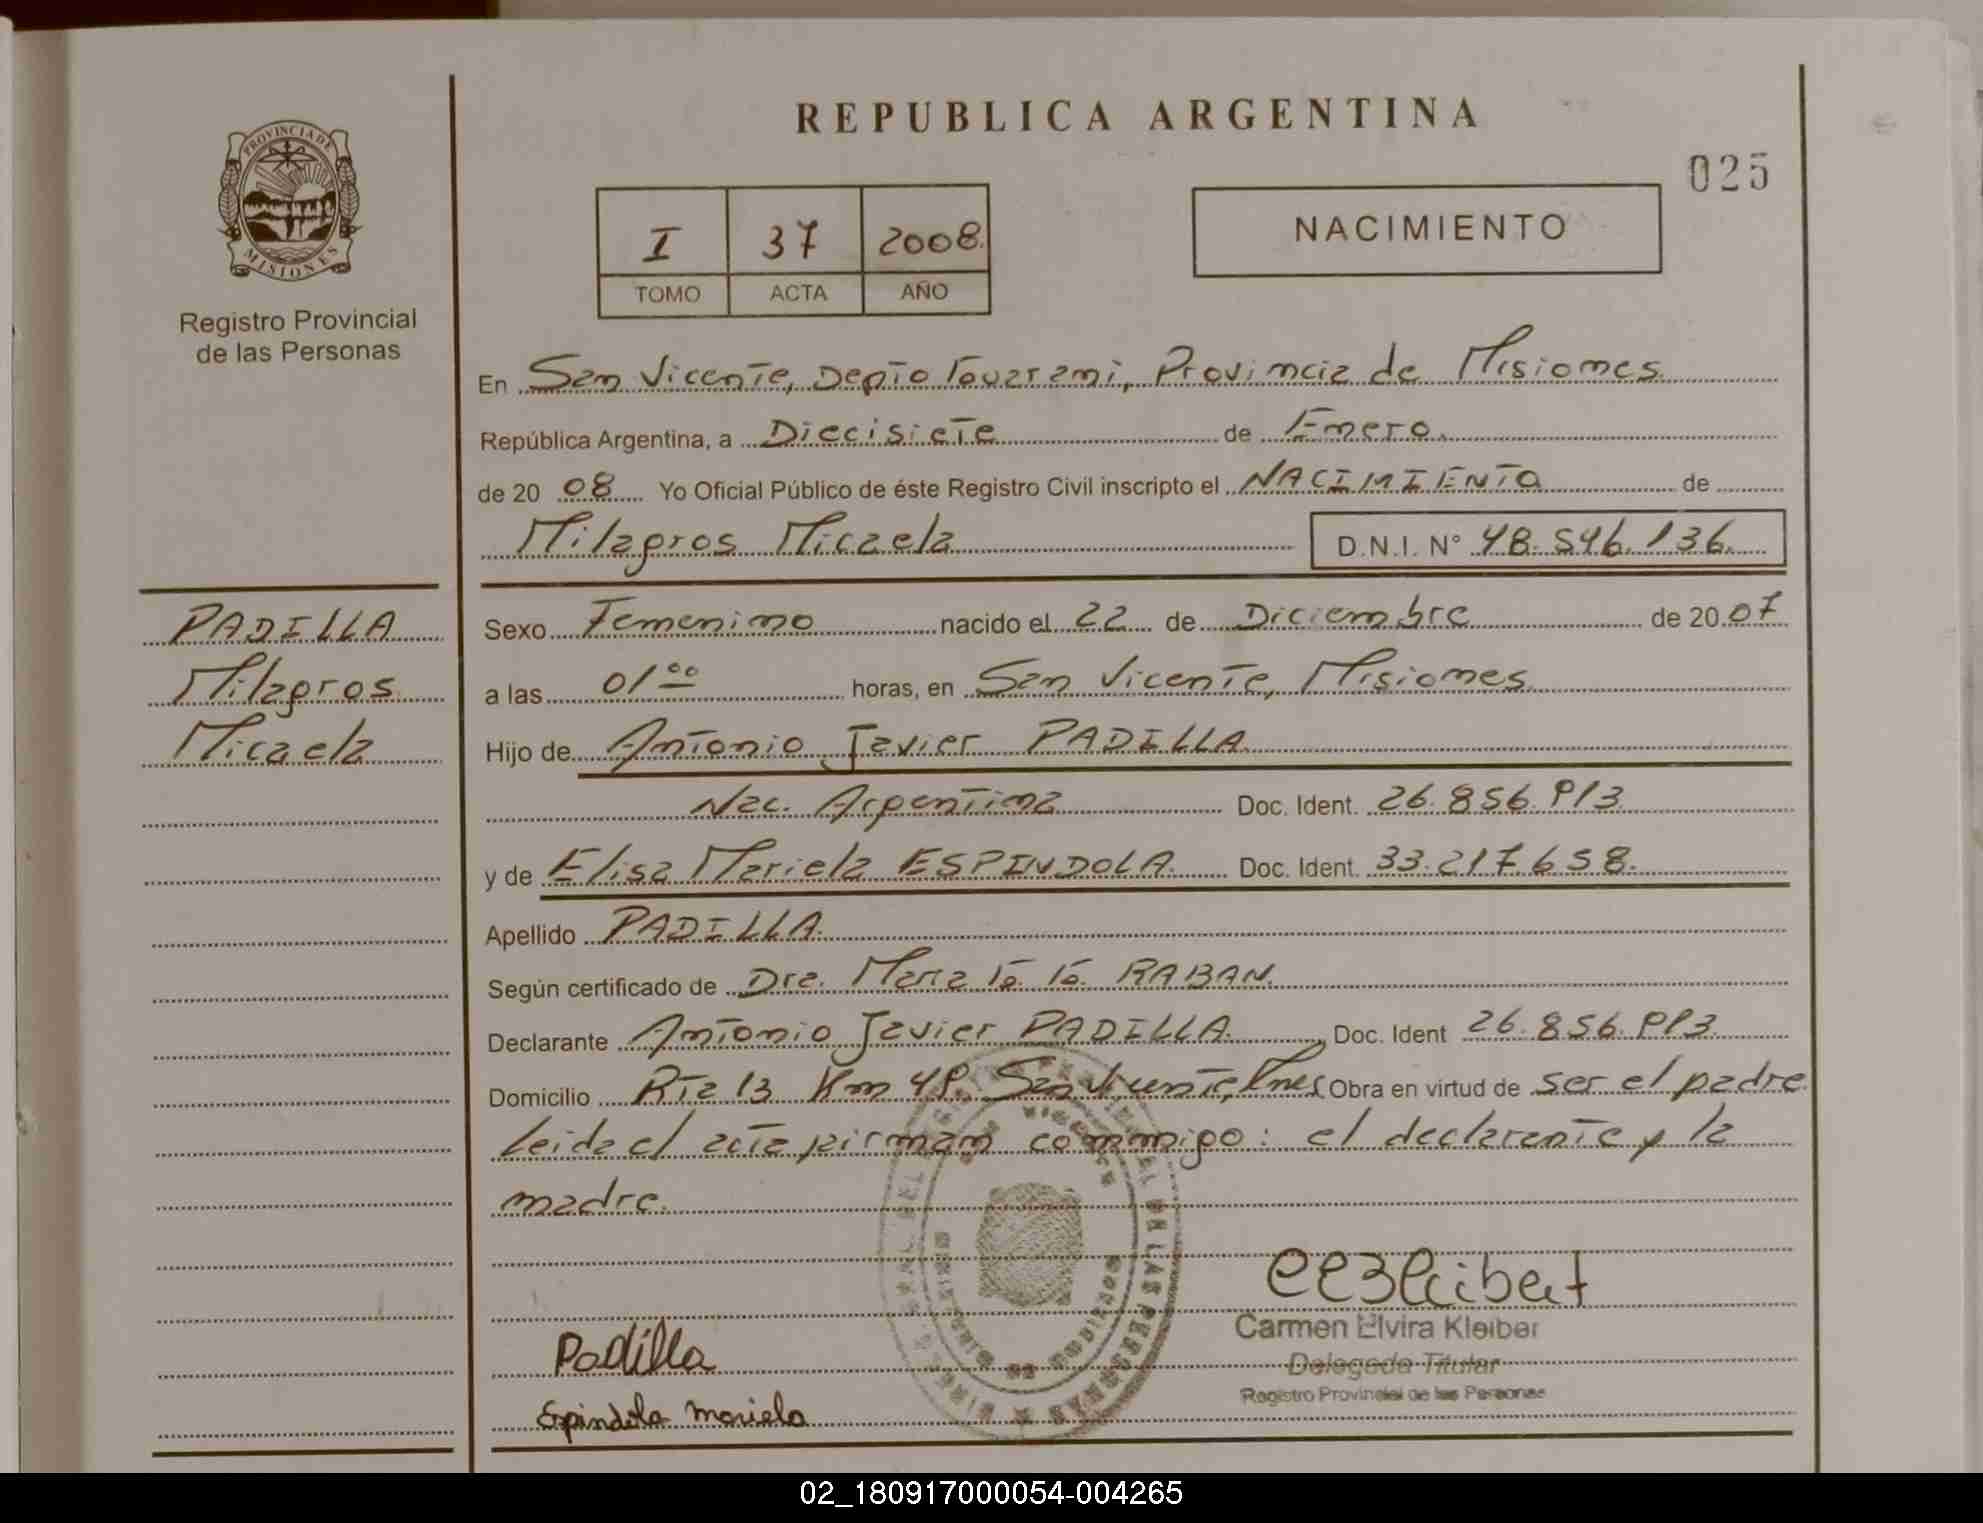 PROVINCIA DE
MISIONES
Registro Provincial
de las Personas
REPUBLICA ARGENTINA
025
I 37 2008.
TOMO ACTA AÑO
NACIMIENTO
En San Vicente, Depto Guarani, Provincia de Misiones
República Argentina, a Diecisiete de Enero.
de 20 08 Yo Oficial Público de éste Registro Civil inscripto el NACIMIENTO de
Milagros Micaela D.N.I. N° 48.546.136.
PADILLA
Milagros
Micaela
Sexo Femenino nacido el 22 de Diciembre de 20 07
a las 01 00 horas, en San Vicente, Misiones
Hijo de Antonio Javier PADILLA
Nac. Argentina Doc. Ident. 26.856.913
y de Elisa Mariela ESPINDOLA Doc. Ident. 33.217.658.
Apellido PADILLA.
Según certificado de Dra. Maria G. G. RABAN.
Declarante Antonio Javier PADILLA. Doc. Ident 26.856.913
Domicilio Rta 13 Km 49, San Vicente, Mnes Obra en virtud de ser el padre
Leida el acta firman conmigo: el declarante y la
madre.
Carmen Elvira Kleiber
Delegada Titular
Registro Provincial de las Personas
Padilla
Espindola Mariela
02_180917000054-004265